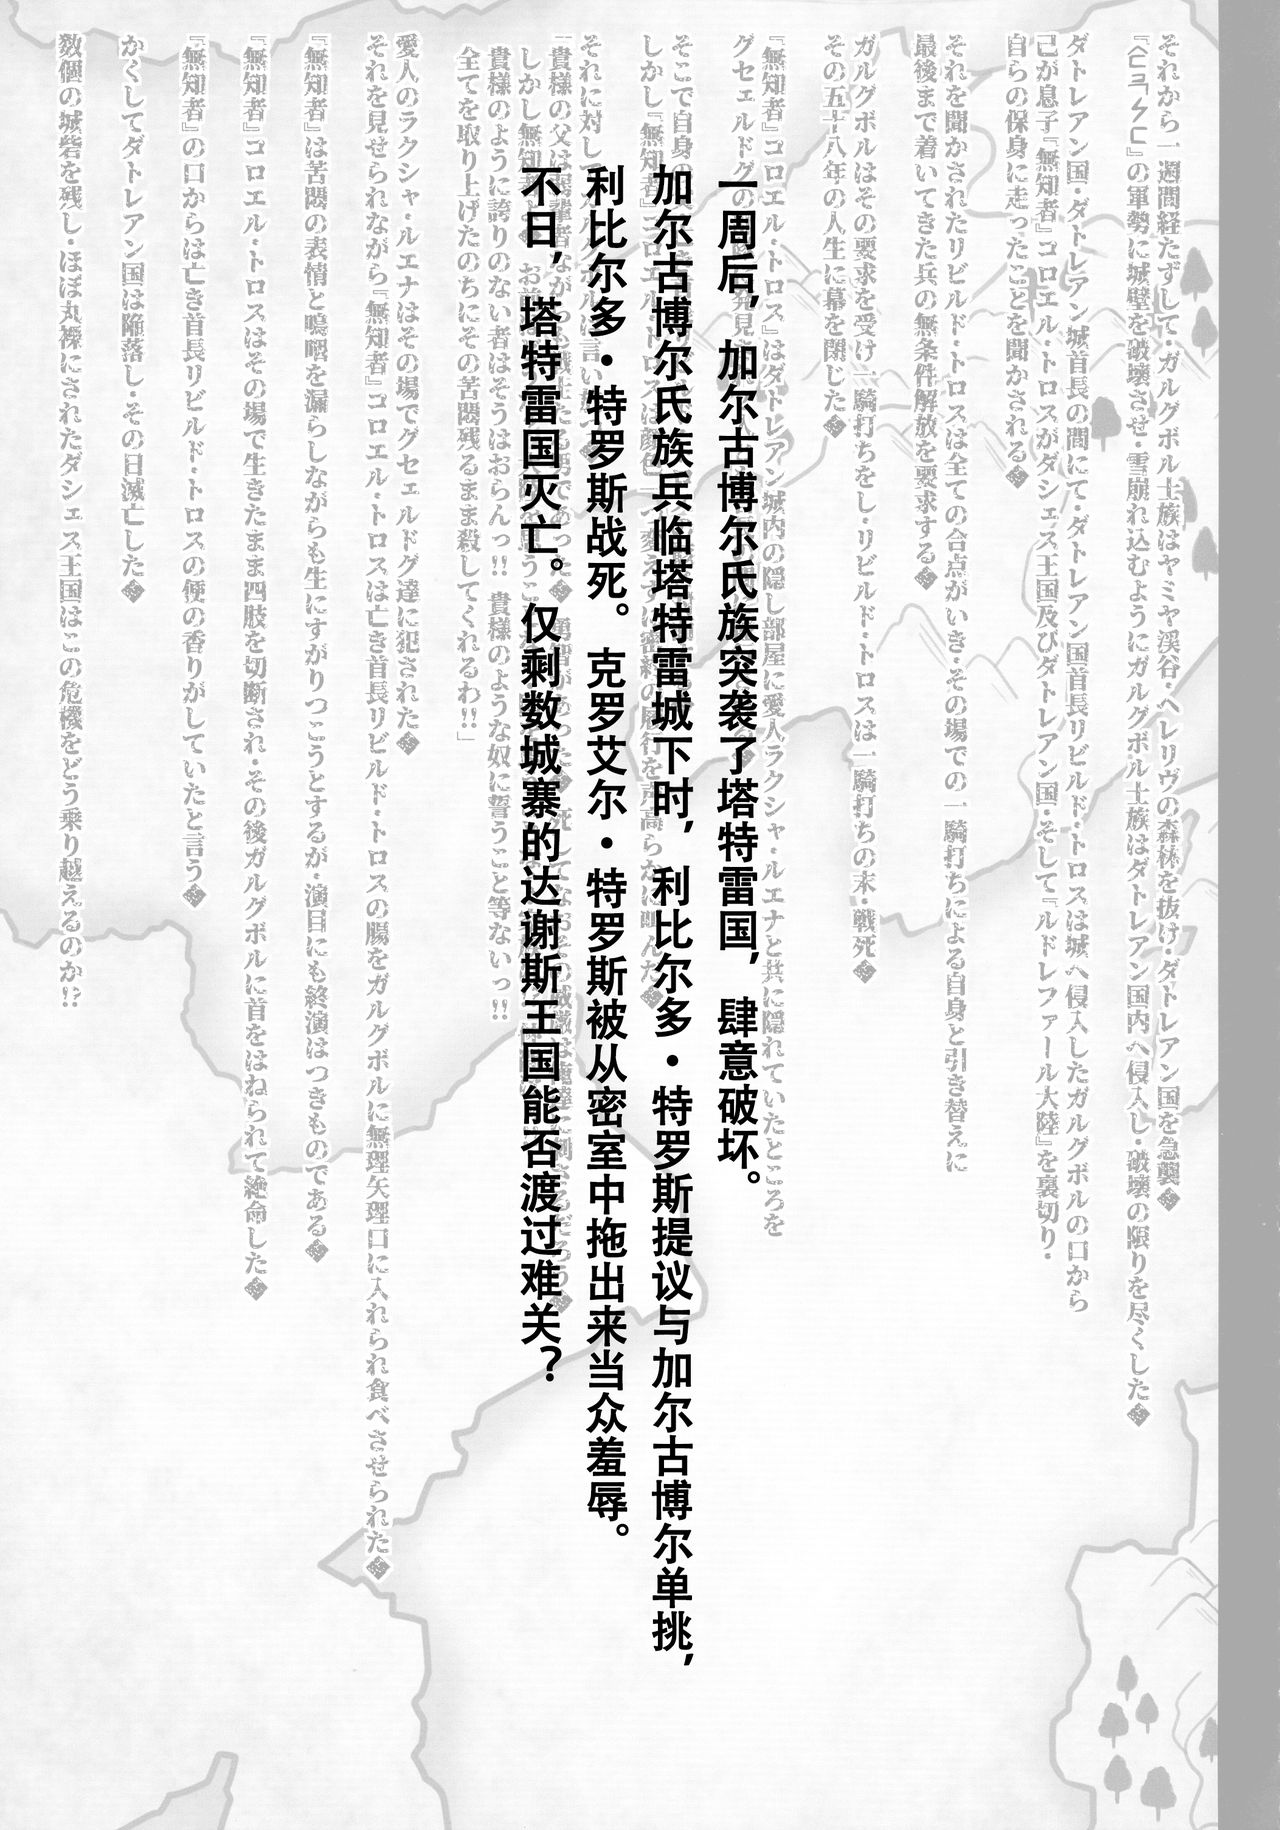 それから一週間経たずして・ガルグボル士族はヤミヤ渓谷・ヘレリヴの森林を抜け・ダトレアン国を急襲
の軍勢に城壁を破壊させ・雪崩れ込むようにガルグボル士族はダトレアン国内へ侵入し・破壊の限りを尽くした
ダトレアン国・ダトレアン城首長の間にて・ダトレアン国首長リビルド・トロスは城へ侵入したガルグボルの口から
己が息子『無知者』コロエル・トロスがダシェス王国及びダトレアン国・そして『ルドレファール大陸』を裏切り・
自らの保身に走ったことを聞かされる
それを聞かされたリビルド・トロスは全ての合点がいき・その場での一騎打ちによる自身と引き替えに
最後まで着いてきた兵の無条件解放を要求する
ガルグボルはその要求を受け一騎打ちをし・リビルド・トロスは一騎打ちの末・戦死
その五十八年の人生に幕を閉じた
『無知者』コロエル・トロス』はダトレアン城内の隠し部屋に愛人ラクシャ・ルエナと共に隠れていたところを
グセェルドグの
一周后，加尔古博尔氏族突袭了塔特雷国，肆意破坏。
そこで自身の
加尔古博尔氏族兵临塔特雷城下时，利比尔多·特罗斯提议与加尔古博尔单挑，
しかし『無知者』コロエル・トロスは顔色
それに対し
利比尔多·特罗斯战死。克罗艾尔·特罗斯被从密室中拖出来当众羞辱。
「貴様の父は
しかし無知者よ
不日，塔特雷国灭亡。仅剩数城寨的达谢斯王国能否渡过难关？
貴様のように誇りのない者はそうはおらんっ!! 貴様のような奴に誓うこと等ないっ!!
全てを取り上げたのちにその苦悶残るまま殺してくれるわ!!」
愛人のラクシャ・ルエナはその場でグセェルドグ達に犯された
それを見せられながら『無知者』コロエル・トロスは亡き首長リビルド・トロスの腸をガルグボルに無理矢理口に入れられ食べさせられた
『無知者』は苦悶の表情と嗚咽を漏らしながらも生にすがりつこうとするが・演目にも終演はつきものである
『無知者』コロエル・トロスはその場で生きたまま四肢を切断され・その後ガルグボルに首をはねられて絶命した
『無知者』の口からは亡き首長リビルド・トロスの便の香りがしていたと言う
かくしてダトレアン国は陥落し・その日滅亡した
数個の城砦を残し・ほぼ丸裸にされたダシェス王国はこの危機をどう乗り越えるのか!?